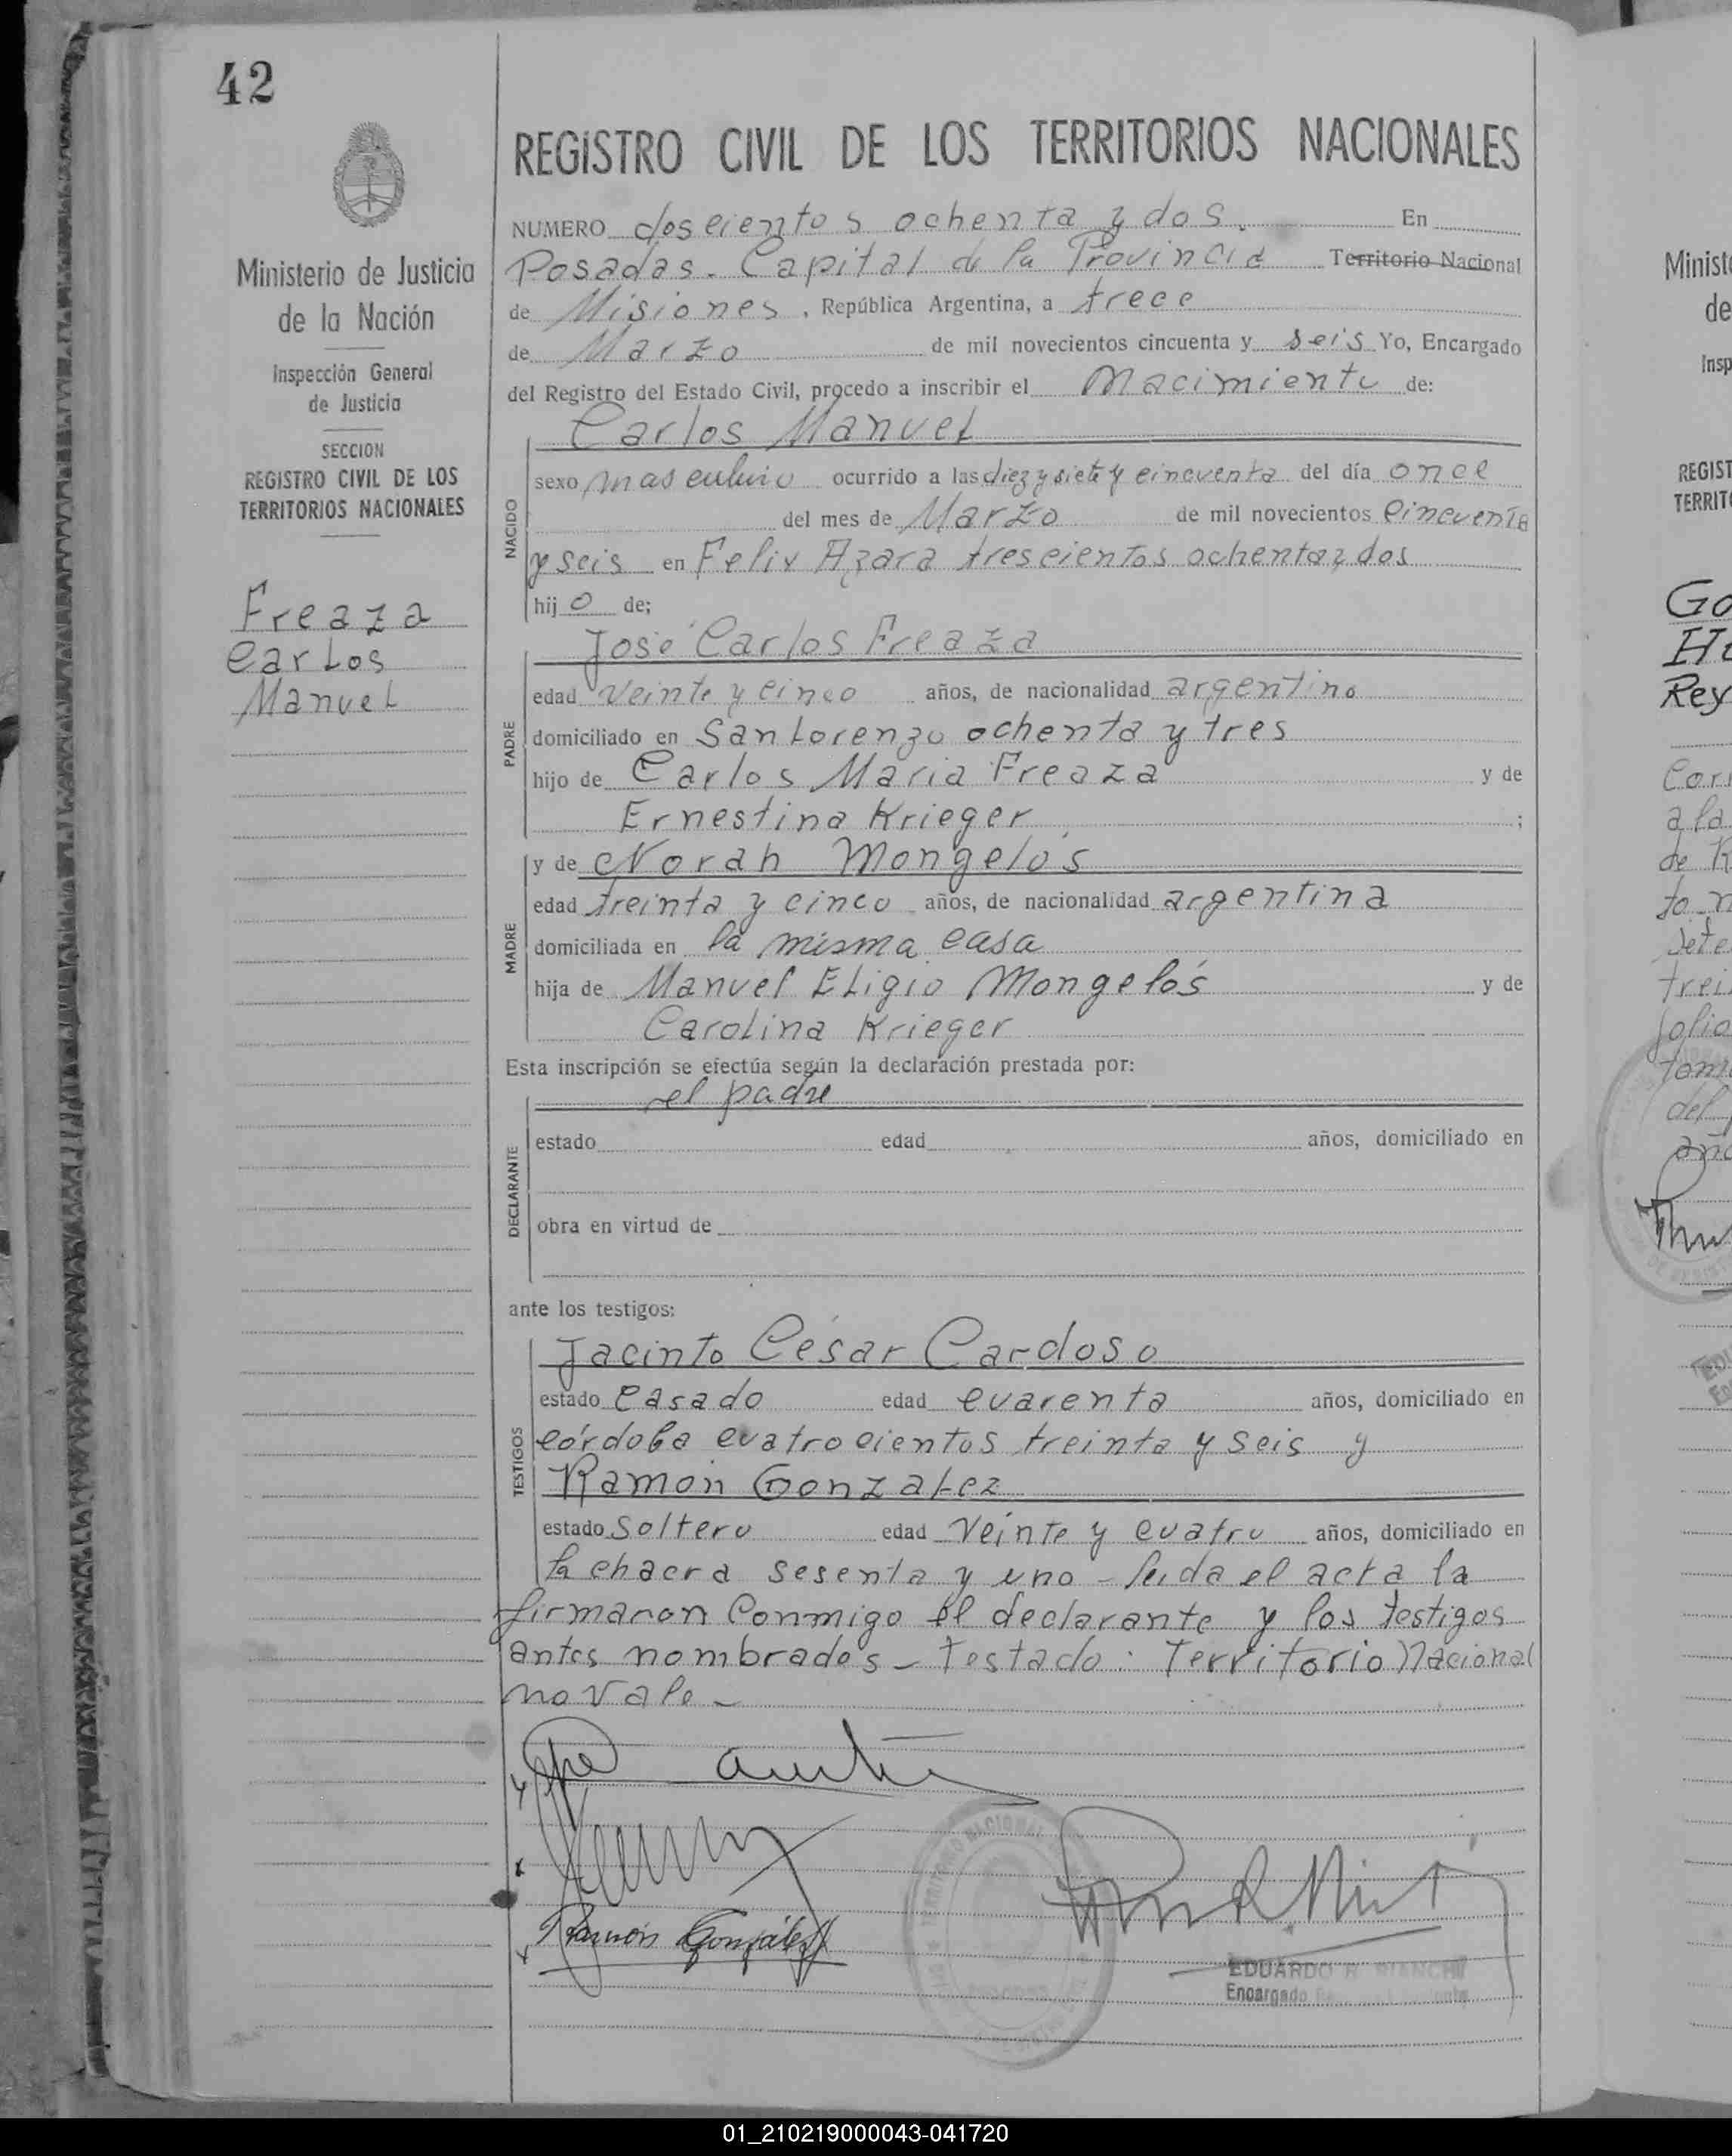 42
Ministerio de Justicia
de la Nación
Inspección General
de Justicia
SECCION
REGISTRO CIVIL DE LOS
TERRITORIOS NACIONALES
Freaza
Carlos
Manuel
REGISTRO CIVIL DE LOS TERRITORIOS NACIONALES
NUMERO doscientos ochenta y dos. En
Posadas. Capital de la Provincia Territorio Nacional
de Misiones, República Argentina, a trece
de Marzo de mil novecientos cincuenta y seis Yo, Encargado
del Registro del Estado Civil, procedo a inscribir el Nacimiento de:
Carlos Manuel
NACIDO
sexo masculino ocurrido a las diez y siete y cincuenta del día once
del mes de Marzo de mil novecientos cincuenta
y seis en Felix Azara trescientos ochenta y dos
hijo de;
José Carlos Freaza
PADRE
edad veinte y cinco años, de nacionalidad argentino
domiciliado en San Lorenzo ochenta y tres
hijo de Carlos Maria Freaza y de
Ernestina Krieger ;
y de Norah Mongelós
MADRE
edad treinta y cinco años, de nacionalidad argentina
domiciliada en la misma casa
hija de Manuel Eligio Mongelós y de
Carolina Krieger
Esta inscripción se efectúa según la declaración prestada por:
el padre
DECLARANTE
estado edad años, domiciliado en
obra en virtud de
ante los testigos:
Jacinto César Cardoso
TESTIGOS
estado casado edad cuarenta años, domiciliado en
córdoba cuatrocientos treinta y seis y
Ramón Gonzalez
estado soltero edad veinte y cuatro años, domiciliado en
la chacra sesenta y uno - leida el acta la
firmaron conmigo el declarante y los testigos
antes nombrados - Testado: Territorio Nacional
no vale -
Ramón González
EDUARDO R. BIANCHI
Encargado
Minist
de
Insp
REGIST
TERRIT
Rey
a la
de
folio
del
01_210219000043-041720